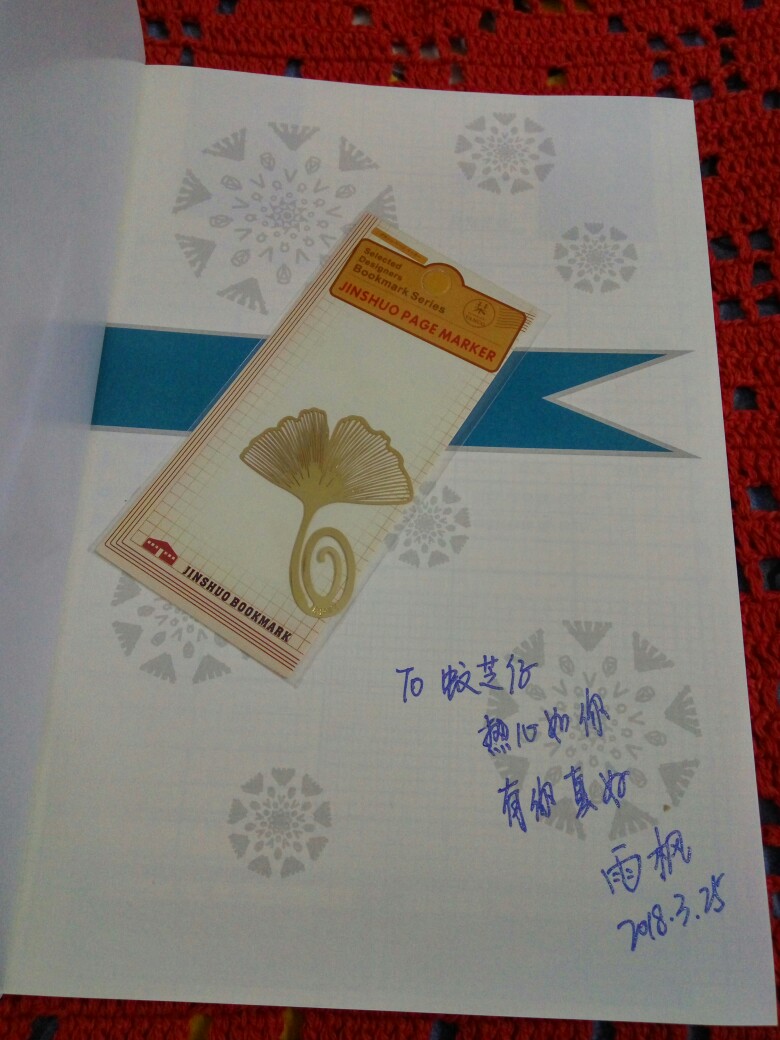 Selected
Designers
Bookmark Series
JINSHUO PAGE MARKER
JINSHUO BOOKMARK
To 蚊芝仔
热心如你
有你真好
雨枫
2018.3.25